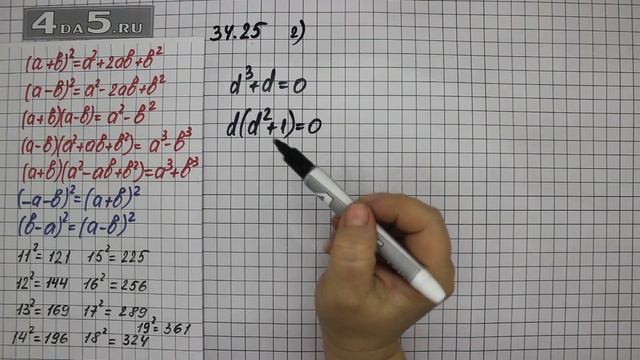 4DA5.RU
34.25 г)
(a+b)²=a²+2ab+b²
(a-b)²=a²-2ab+b²
(a+b)(a-b)=a²-b²
(a-b)(a²+ab+b²)=a³-b³
(a+b)(a²-ab+b²)=a³+b³
(-a-b)²=(a+b)²
(b-a)²=(a-b)²
11²=121 15²=225
12²=144 16²=256
13²=169 17²=289
14²=196 18²=324
19²=361
d³+d=0
d(d²+1)=0